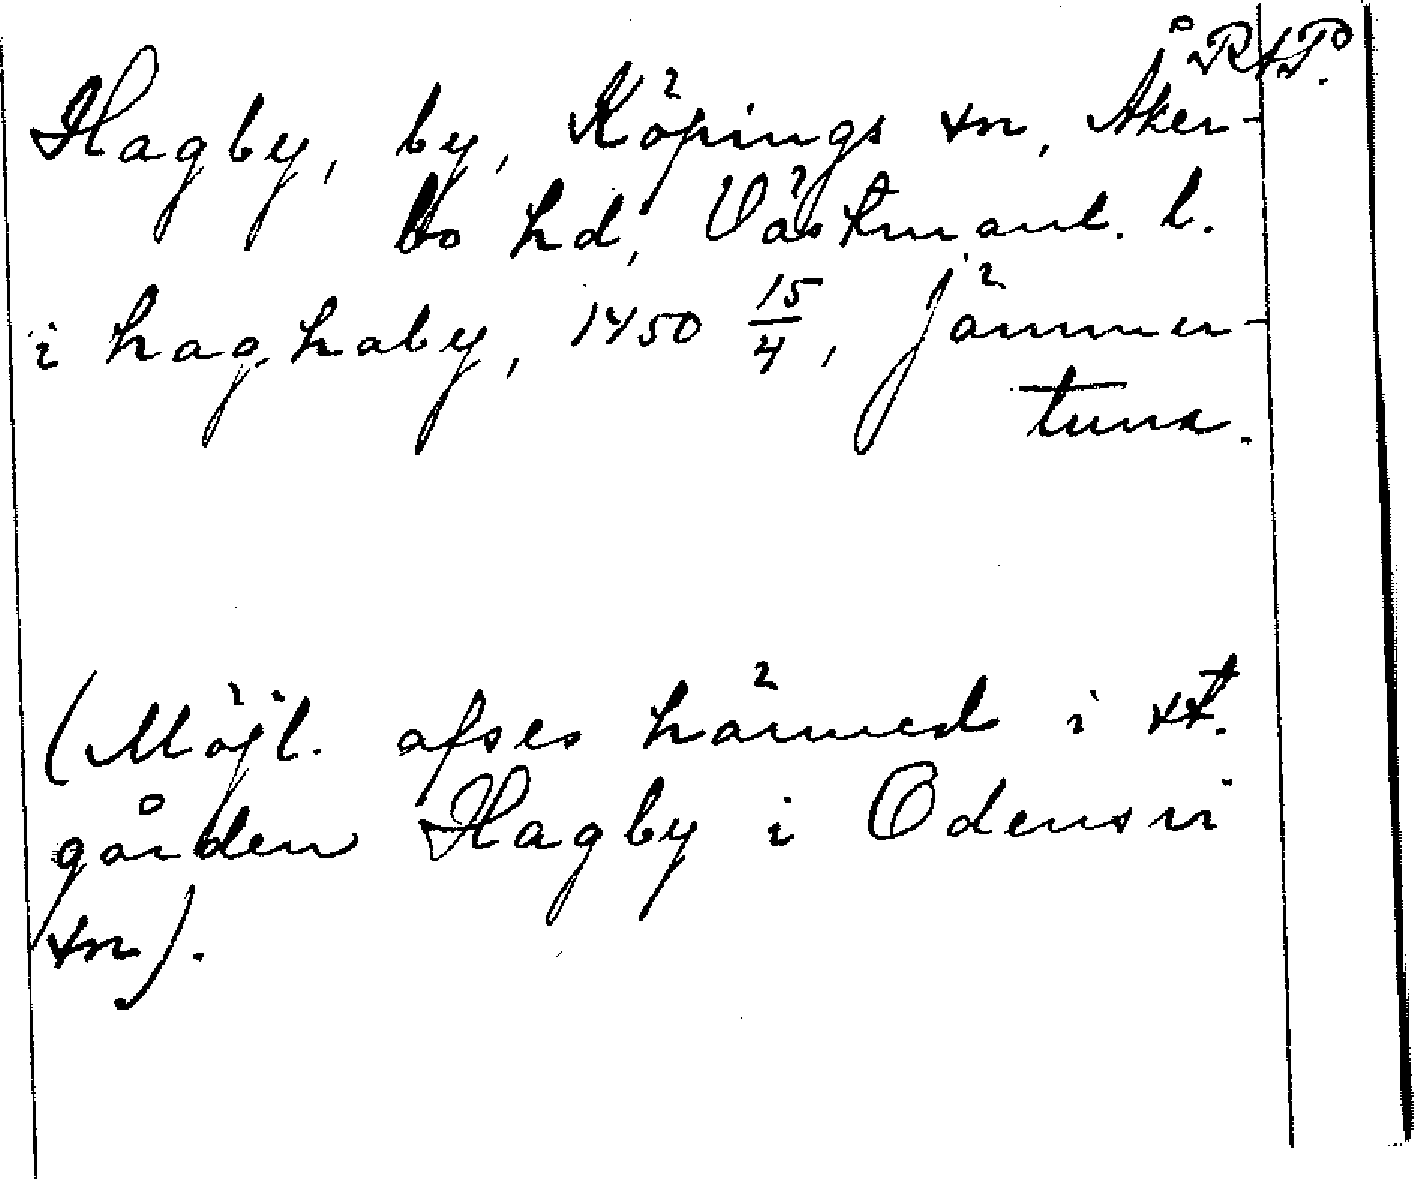 RAP.
Hagby, by, Köpings sn, Åker-
bo hd, Västmanl. l.
i haghaby, 1450 15/4, Jämmer-
tuna.
(Möjl. afses härmed i st.
gården Hagby i Odensvi
sn).